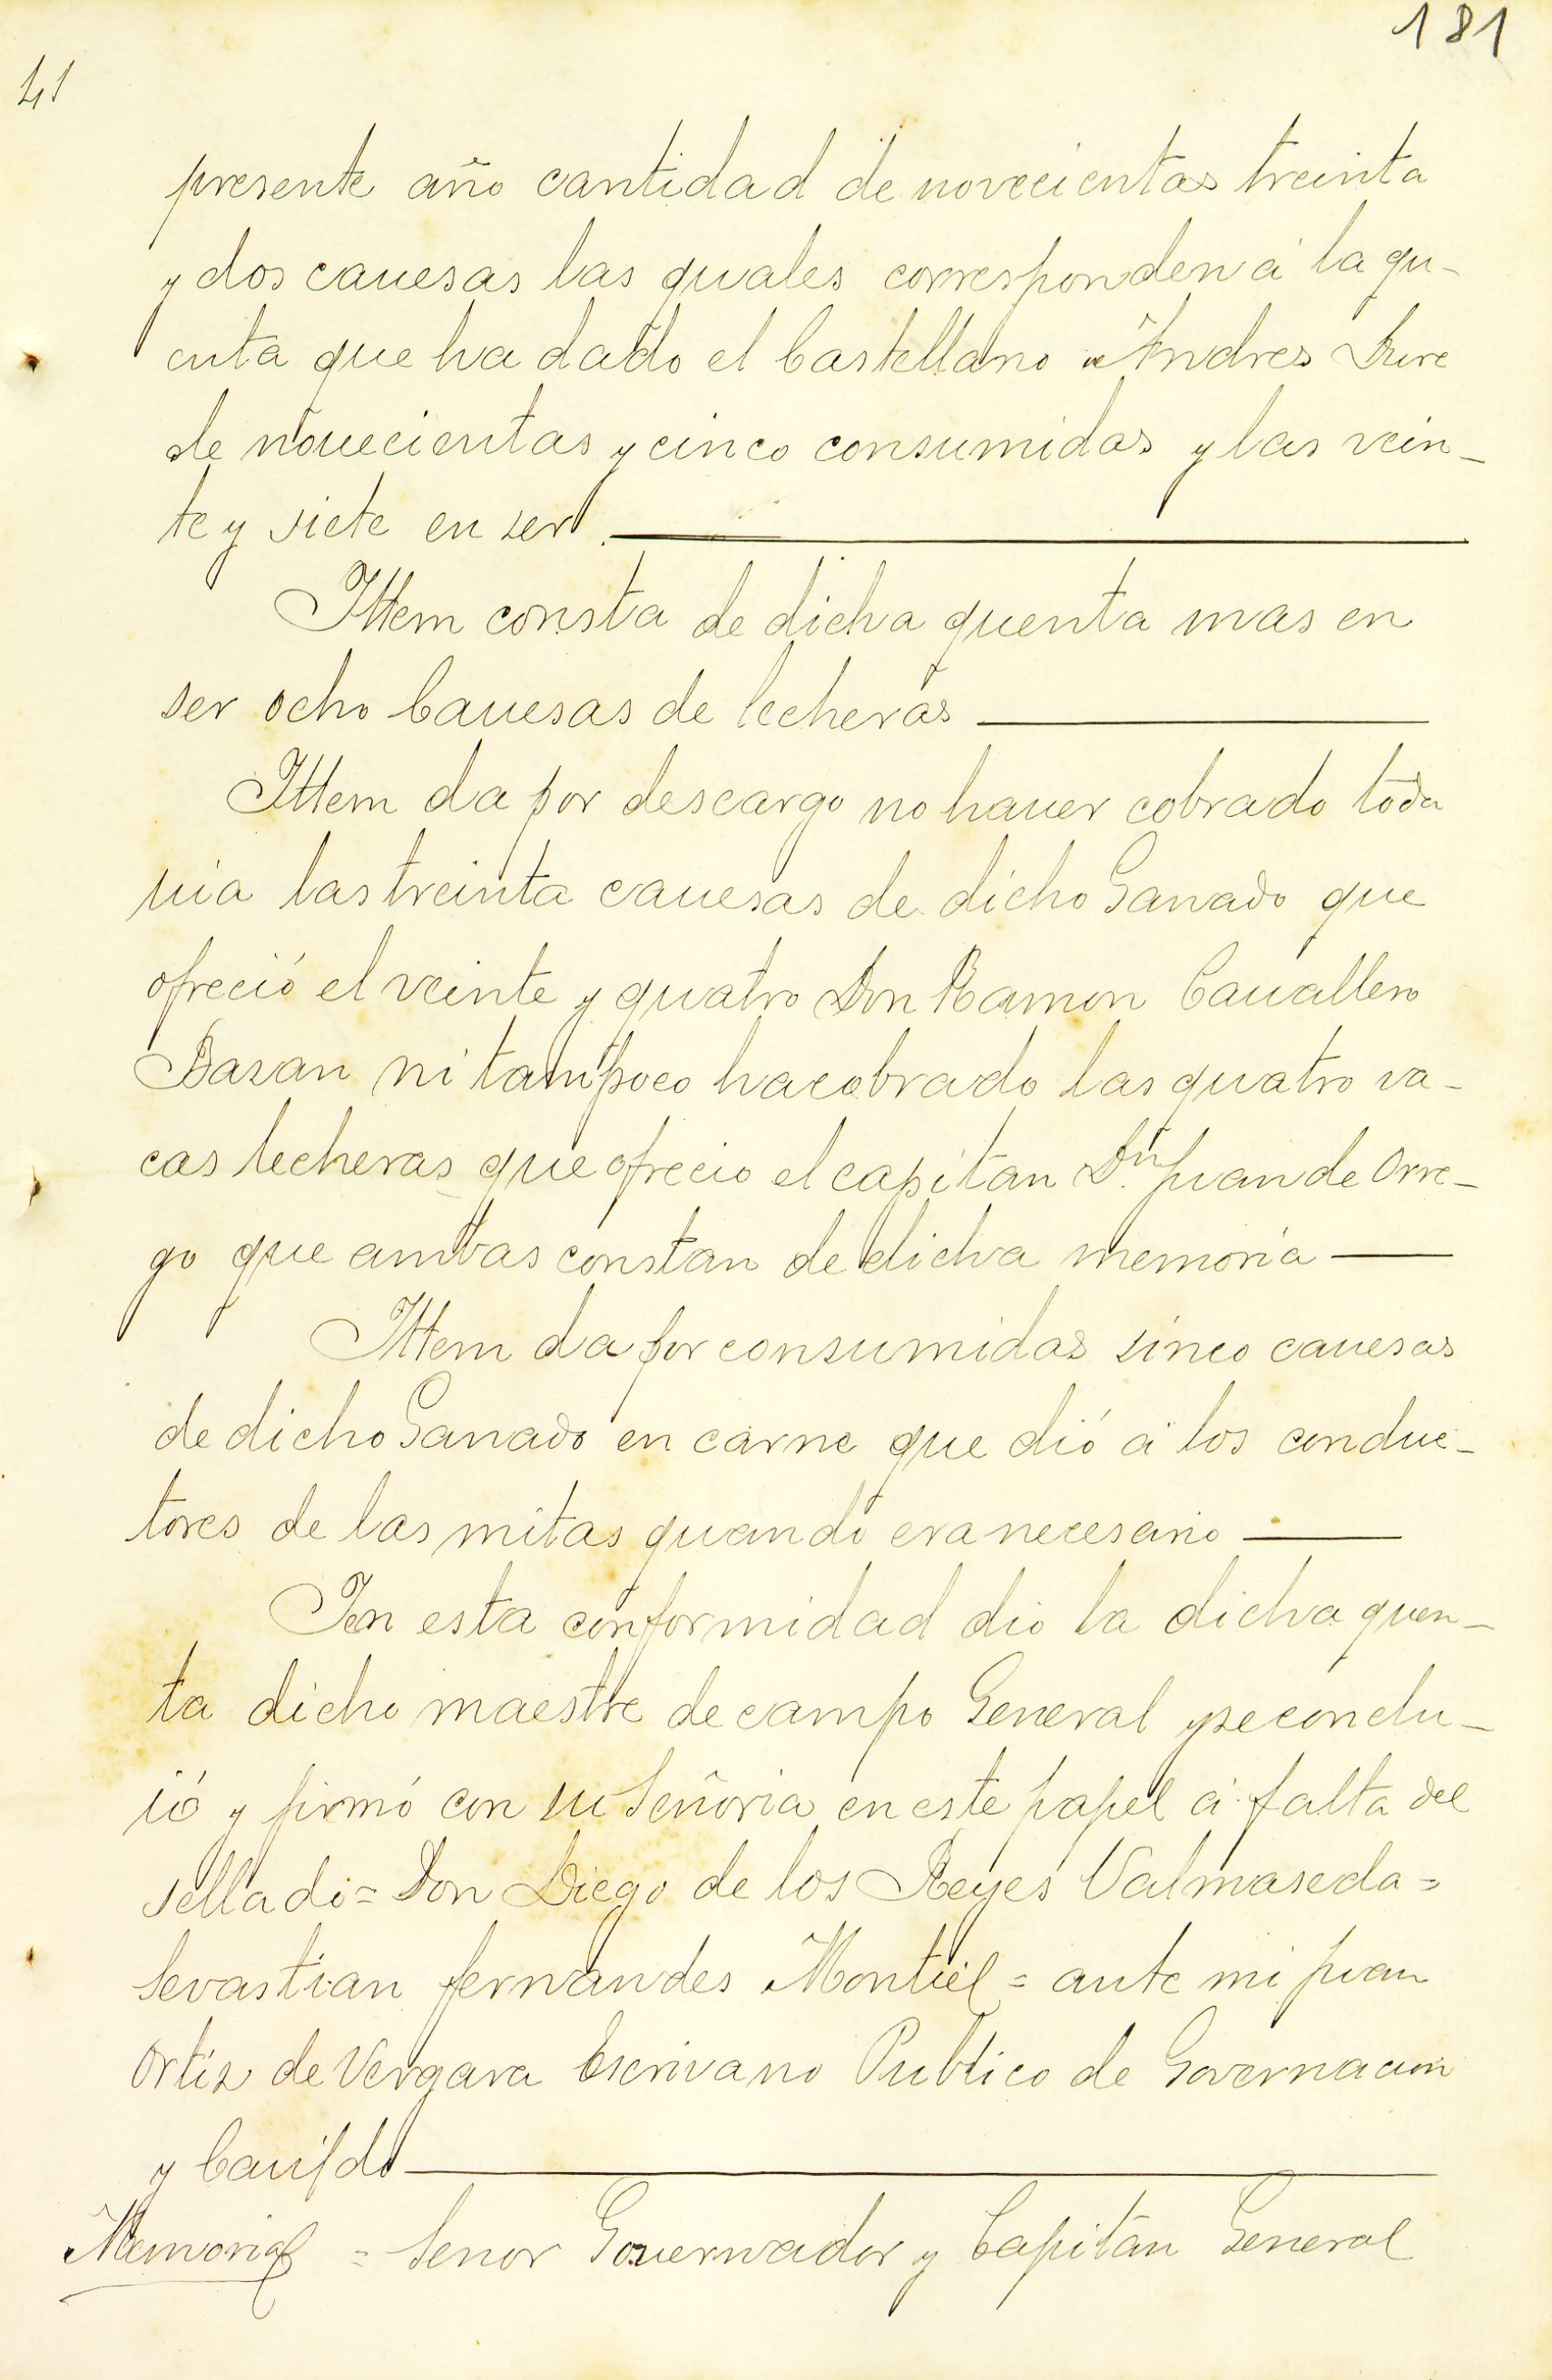 181
41
presente año cantidad de novecientas treinta
y dos cauesas las quales corresponden á la qu-
enta que ha dado el Castellano Andres
de nouecientas y cinco consumidas y las vein-
te y siete en ser
Ittem consta de dicha quenta mas en
ser ocho Cauesas de lecheras
Ittem da por descargo no hauer cobrado toda
uia las treinta cauesas de dicho Ganado que
ofreció el veinte y quatro Don Ramon Cauallero
Basan ni tampoco ha cobrado las quatro va-
cas lecheras que ofrecio el capitan Dn. Juan de Orre-
go que ambas constan de dicha memoria
Ittem da por consumidas sinco cauesas
de dicho Ganado en carne que dió á los conduc-
tores de las mitas quando era necesario
Ien esta conformidad dio la dicha quen-
ta dicho maestre de campo General y se conclu-
ió y firmó con su Señoria en este papel á falta del
sellado = Don Diego de los Reyes Valmaseda =
Sevastian fernandes Montiel = ante mi Juan
Ortiz de Vergara Escrivano Publico de Governacion
y Cauildo
Memorial = Senor Gouernador y Capitan General